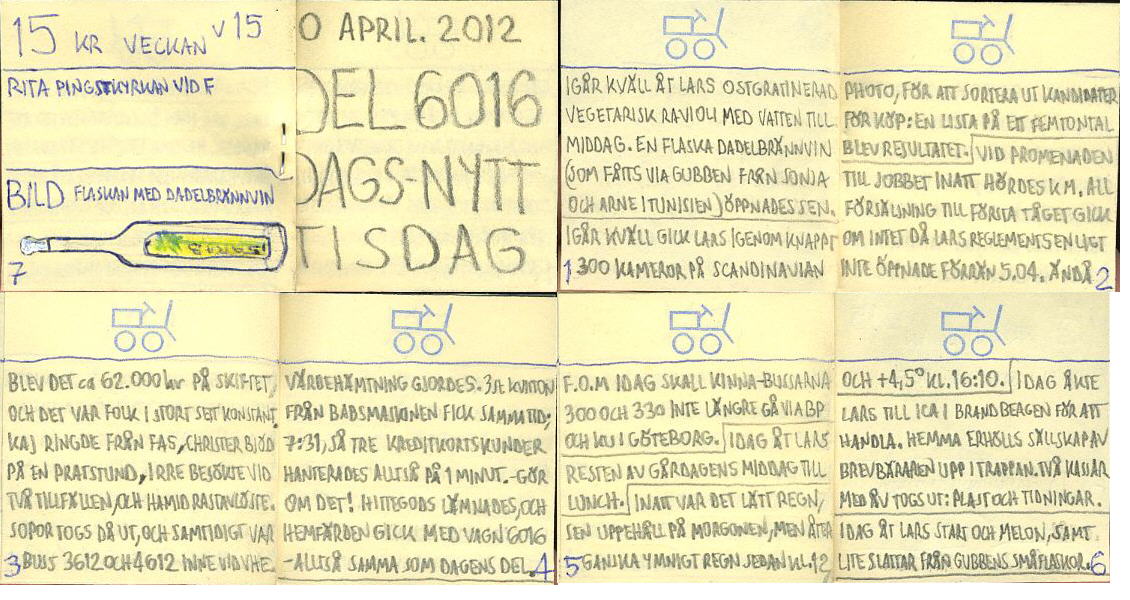 15 KR VECKAN V15
RITA PINGSTKYRKAN VID F
BILD FLASKAN MED DADELBRÄNNVIN
7
0 APRIL. 2012
DEL 6016
DAGS-NYTT
TISDAG
IGÅR KVÄLL ÅT LARS OSTGRATINERAD
VEGETARISK RAVIOLI MED VATTEN TILL
MIDDAG. EN FLASKA DADELBRÄNNVIN
(SOM FÅTTS VIA GUBBEN FRÅN SONJA
OCH ARNE I TUNISIEN) ÖPPNADES SEN.
IGÅR KVÄLL GICK LARS IGENOM KNAPPT
1 300 KAMEROR PÅ SCANDINAVIAN
PHOTO, FÖR ATT SORTERA UT KANDIDATER
FÖR KÖP: EN LISTA PÅ ETT FEMTONTAL
BLEV RESULTATET. VID PROMENADEN
TILL JOBBET INATT HÖRDES KM. ALL
FÖRSÄLJNING TILL FÖRSTA TÅGET GICK
OM INTET DÅ LARS REGLEMENTSENLIGT
INTE ÖPPNADE FÖRRÄN 5.04. ÄNDÅ 2
BLEV DET ca 62.000 kr PÅ SKIFTET,
OCH DET VAR FOLK I STORT SETT KONSTANT.
KAJ RINGDE FRÅN FAS, CHRISTER BJÖD
PÅ EN PRATSTUND, IRRE BESÖKTE VID
TVÅ TILLFÄLLEN, OCH HAMID RASTADE.
SOPOR TOGS DÅ UT, OCH SAMTIDIGT VAR
3 BUSS 3612 OCH 4612 INNE VID VHE.
VÄRBEHÄMTNING GJORDES. 3 st KVITTON
FRÅN BABSMASKINEN FICK SAMMA TID;
7:31, SÅ TRE KREDITKORTSKUNDER
HANTERADES ALLTSÅ PÅ 1 MINUT. -GÖR
OM DET! HITTEGODS LÄMNADES, OCH
HEMFÄRDEN GICK MED VAGN 6016
-ALLTSÅ SAMMA SOM DAGENS DEL. 4
F.O.M IDAG SKALL KINNA-BUSSARNA
300 OCH 330 INTE LÄNGRE GÅ VIA BP
OCH KU I GÖTEBORG. IDAG ÅT LARS
RESTEN AV GÅRDAGENS MIDDAG TILL
LUNCH. INATT VAR DET LÄTT REGN,
SEN UPPEHÅLL PÅ MORGONEN, MEN ÅTER
5 GANSKA YMNIGT REGN SEDAN kl. 12
OCH +4,5° KL. 16:10. IDAG ÅKTE
LARS TILL ICA I BRANDBERGEN FÖR ATT
HANDLA. HEMMA ERHÖLLS SÄLLSKAP AV
BREVBÄRAREN UPP I TRAPPAN. TVÅ KASSAR
MED ÅV TOGS UT: PLAST OCH TIDNINGAR.
IDAG ÅT LARS START OCH MELON, SAMT
LITE SLATTAR FRÅN GUBBENS SMÅFLASKOR. 6